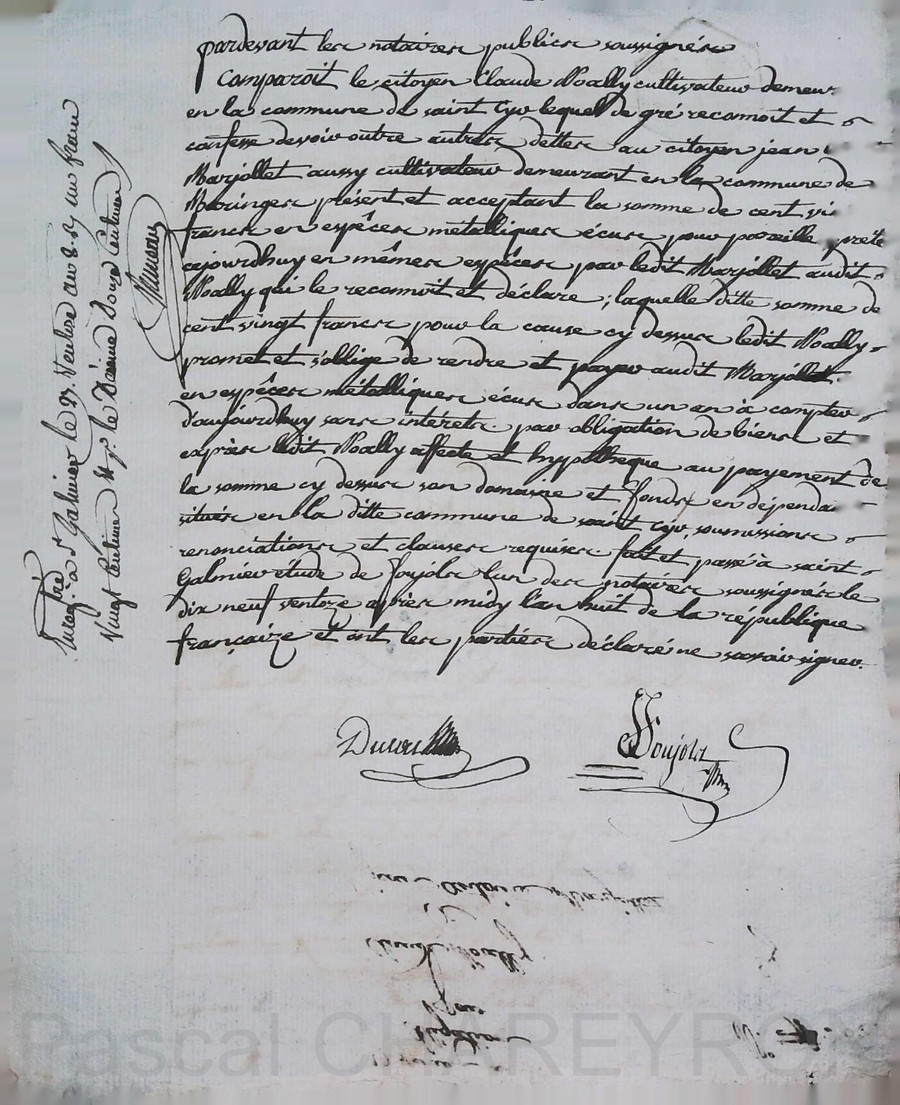 pardevant les notaires publics soussignés
Comparoit le citoyen Claude Noally cultivateur demeur
en la commune de saint Cyr lequel de gré reconnoit et
confesse devoir outre autres dettes au citoyen jean
Marjollet aussy cultivateur demeurant en la commune de
Maringes présent et acceptant la somme de cent vi
francs en espêces métalliques écus pour pareille prète
cejourdhuy en mêmes espêces par ledit Marjollet audit
Noally qui le reconnoit et déclare ; laquelle ditte somme de
cent vingt francs pour la cause cy dessus ledit Noally
promet et s'oblige de rendre et payer audit Marjollet
en espêces métalliques écus dans un an à compter
d'aujourdhuy sans intérets. par obligation de biens et
exprès ledit Noally affecte et hypothèque au payement de
la somme cy dessus son domaine et fonds en dépenda
situés en la ditte commune de saint cyr, soumissions
renonciations et clauses requises. fait et passé à saint
Galmier étude de Poujols l'un des notaires soussignés le
dix neuf ventoze après midy l'an huit de la république
françaize et ont les parties déclaré ne savoir signer.
Enregtré à St Galmier le 27 Ventose an 8. Rç un franc
Vingt Centimes &
Poujols
Claude Noally
Pascal CHAREYRON